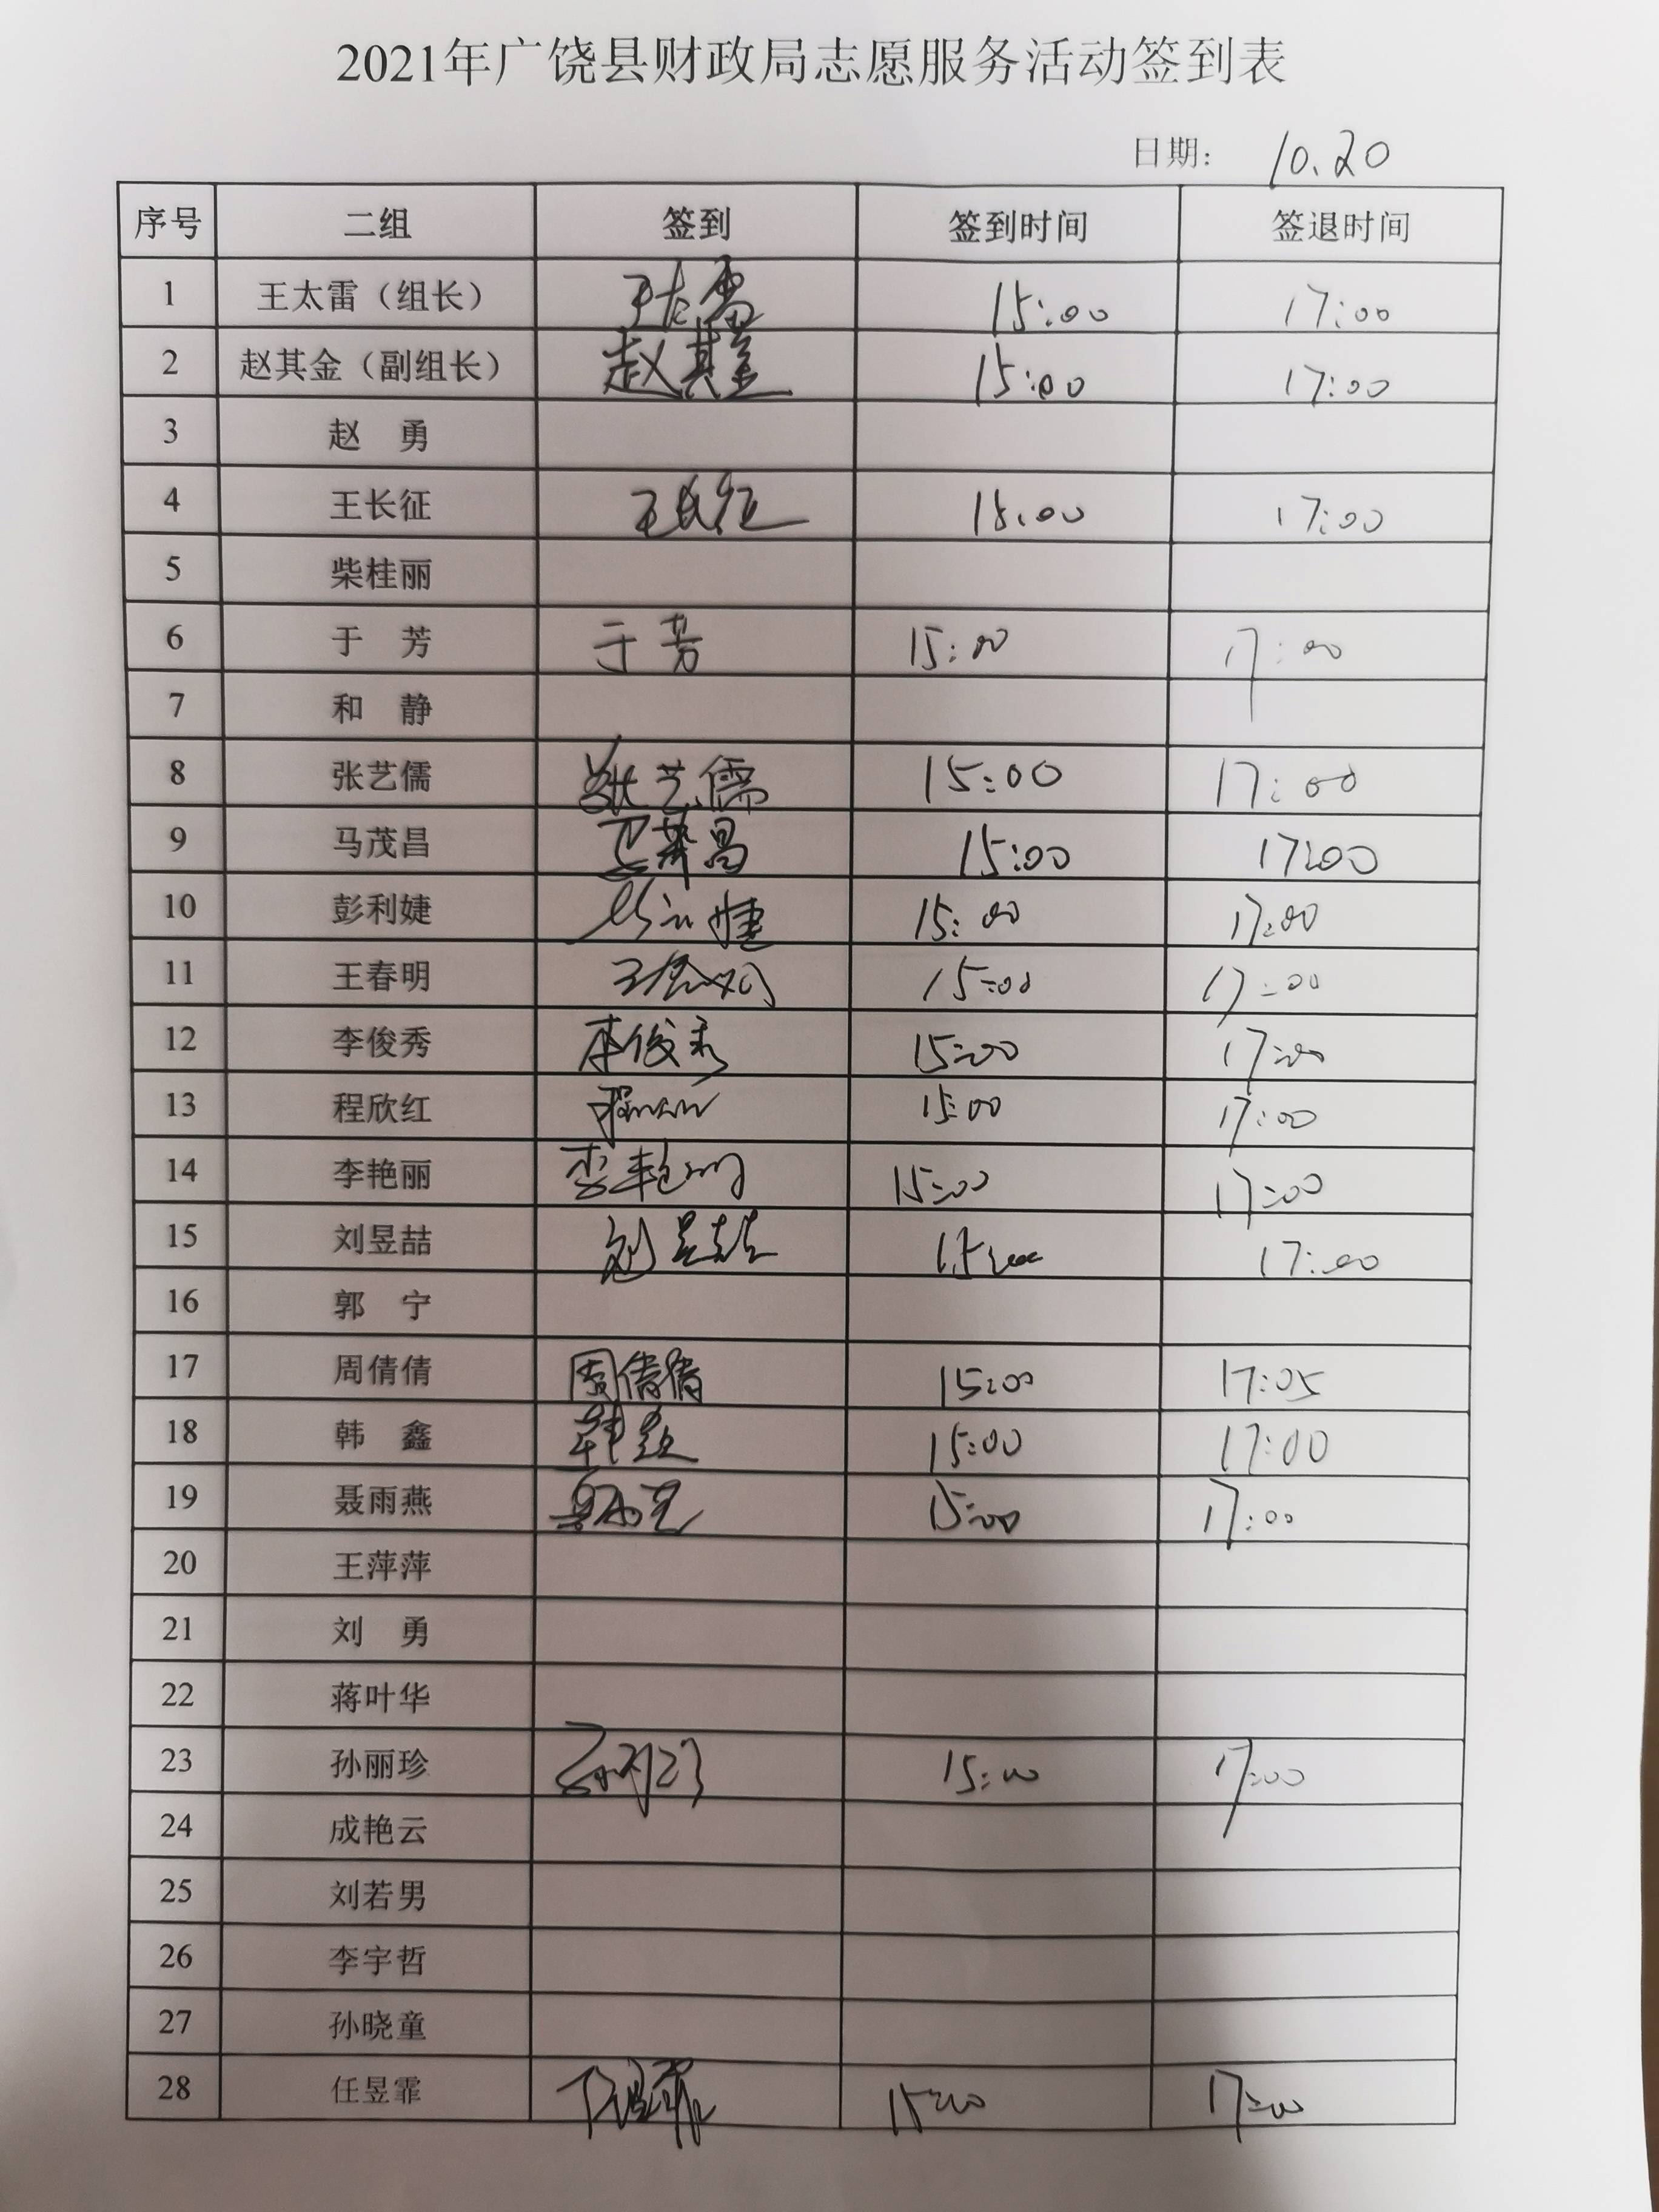 2021年广饶县财政局志愿服务活动签到表
日期： 10.20
序号 二组 签到 签到时间 签退时间
1 王太雷（组长） 王太雷 15:00 17:00
2 赵其金（副组长） 赵其金 15:00 17:00
3 赵 勇
4 王长征 王长征 15:00 17:00
5 柴桂丽
6 于 芳 于芳 15:00 17:00
7 和 静
8 张艺儒 张艺儒 15:00 17:00
9 马茂昌 马茂昌 15:00 17:00
10 彭利婕 15:00 17:00
11 王春明 王春明 15:00 17:00
12 李俊秀 李俊秀 15:00 17:00
13 程欣红 15:00 17:00
14 李艳丽 李艳丽 15:00 17:00
15 刘昱喆 刘昱喆 15:00 17:00
16 郭 宁
17 周倩倩 周倩倩 15:00 17:05
18 韩 鑫 韩鑫 15:00 17:00
19 聂雨燕 15:00 17:00
20 王萍萍
21 刘 勇
22 蒋叶华
23 孙丽珍 15:00 17:00
24 成艳云
25 刘若男
26 李宇哲
27 孙晓童
28 任昱霏 任昱霏 15:00 17:00